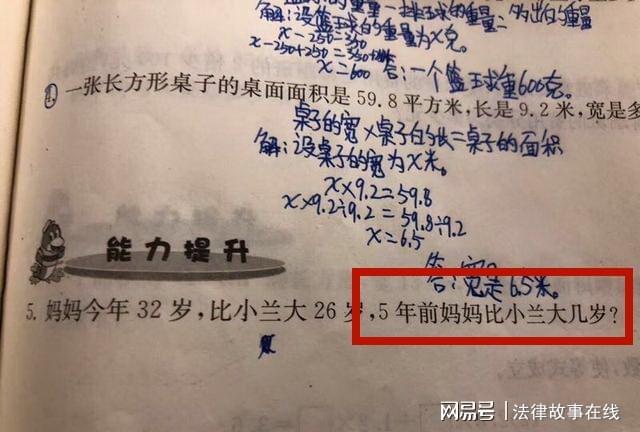 解：设篮球的重量为x克。
x-250=350
x=600 答：一个篮球重600克。
一张长方形桌子的桌面面积是59.8平方米，长是9.2米，宽是多
桌子的宽×桌子的长=桌子的面积
解：设桌子的宽为x米。
x×9.2=59.8
x×9.2÷9.2=59.8÷9.2
x=6.5
答：宽是6.5米。
能力提升
5. 妈妈今年32岁，比小兰大26岁，5年前妈妈比小兰大几岁？
网易号 | 法律故事在线